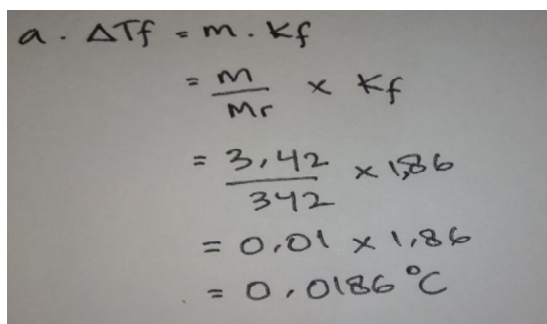 a. ΔTf = m . Kf
= m/Mr x Kf
= 3,42/342 x 1,86
= 0,01 x 1,86
= 0,0186 °C